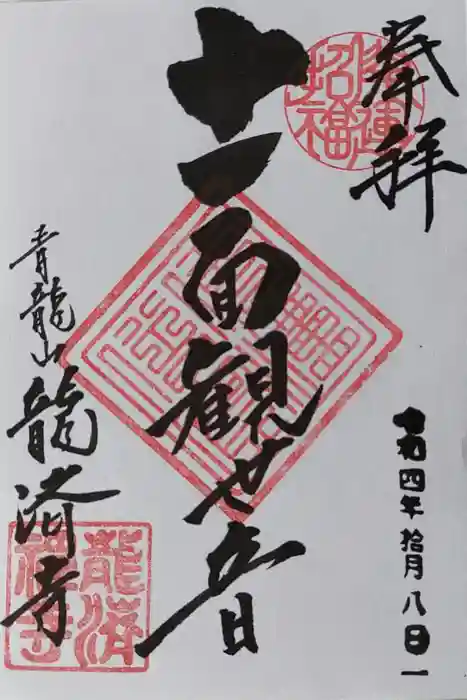 奉拝
開運招福
十一面観世音
青龍山 龍済寺
龍済禅寺
令和四年拾月八日